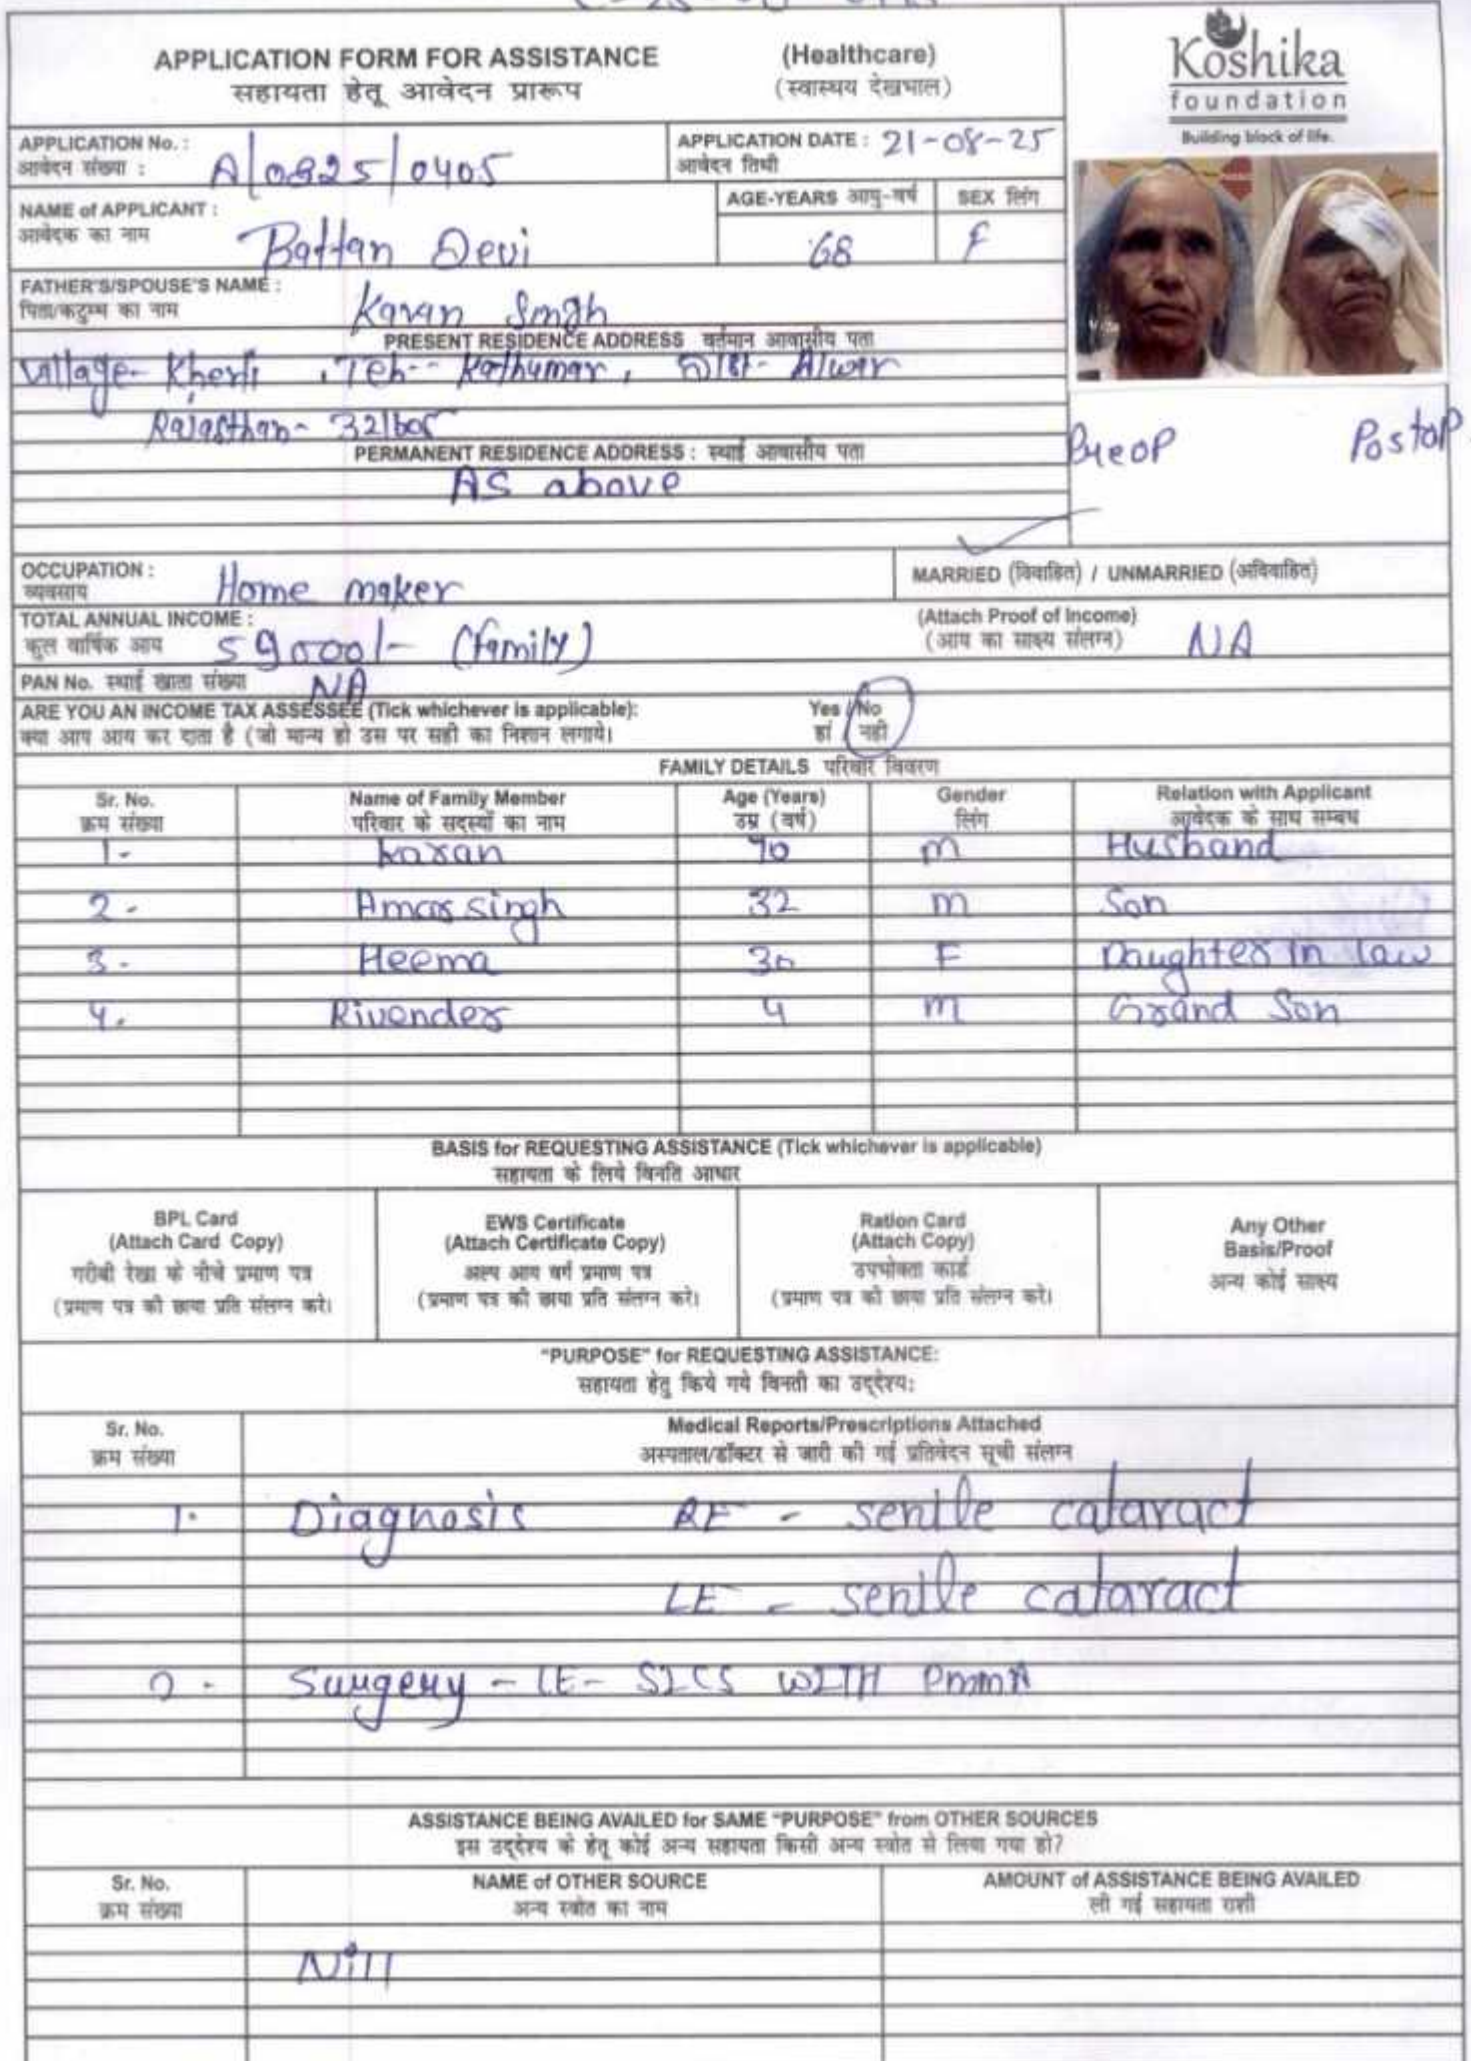 APPLICATION FORM FOR ASSISTANCE (Healthcare)
सहायता हेतू आवेदन प्रारूप (स्वास्थय देखभाल)
Koshika
foundation
Building block of life.
APPLICATION No. : A/0825/0405
आवेदन संख्या :
APPLICATION DATE : 21-08-25
आवेदन तिथी
NAME of APPLICANT : Battan Devi
आवेदक का नाम
AGE-YEARS आयु-वर्ष 68
SEX लिंग F
FATHER'S/SPOUSE'S NAME : Karan Singh
पिता/कटुम्ब का नाम
PRESENT RESIDENCE ADDRESS वर्तमान आवासीय पता
Village- Kherli , Teh-- Kathumar, Dist- Alwar
Rajasthan- 321605
Preop Postop
PERMANENT RESIDENCE ADDRESS : स्थाई आवासीय पता
AS above
OCCUPATION : Home maker
व्यवसाय
MARRIED (विवाहित) / UNMARRIED (अविवाहित)
TOTAL ANNUAL INCOME : 59000/- (family)
कुल वार्षिक आय
(Attach Proof of Income) NA
(आय का साक्ष्य संलग्न)
PAN No. स्थाई खाता संख्या NA
ARE YOU AN INCOME TAX ASSESSEE (Tick whichever is applicable): Yes / No
क्या आप आय कर दाता है (जो मान्य हो उस पर सही का निशान लगाये। हां / नही
FAMILY DETAILS परिवार विवरण
Sr. No. Name of Family Member Age (Years) Gender Relation with Applicant
क्रम संख्या परिवार के सदस्यों का नाम उम्र (वर्ष) लिंग आवेदक के साथ सम्बध
1- Karan 70 m Husband
2- Amar singh 32 m Son
3- Heema 30 F Daughter in law
4. Rivender 4 m Grand Son
BASIS for REQUESTING ASSISTANCE (Tick whichever is applicable)
सहायता के लिये विनति आधार
BPL Card
(Attach Card Copy)
गरीबी रेखा के नीचे प्रमाण पत्र
(प्रमाण पत्र की छाया प्रति संलग्न करे।
EWS Certificate
(Attach Certificate Copy)
अल्प आय वर्ग प्रमाण पत्र
(प्रमाण पत्र की छाया प्रति संलग्न करे।
Ration Card
(Attach Copy)
उपभोक्ता कार्ड
(प्रमाण पत्र की छाया प्रति संलग्न करे।
Any Other
Basis/Proof
अन्य कोई साक्ष्य
"PURPOSE" for REQUESTING ASSISTANCE:
सहायता हेतु किये गये विनती का उद्देश्य:
Sr. No. Medical Reports/Prescriptions Attached
क्रम संख्या अस्पताल/डॉक्टर से जारी की गई प्रतिवेदन सूची संलग्न
1. Diagnosis RE - senile cataract
LE - senile cataract
2 - Surgery - LE- SICS WITH PMMA
ASSISTANCE BEING AVAILED for SAME "PURPOSE" from OTHER SOURCES
इस उद्देश्य के हेतू कोई अन्य सहायता किसी अन्य स्त्रोत से लिया गया हो?
Sr. No. NAME of OTHER SOURCE AMOUNT of ASSISTANCE BEING AVAILED
क्रम संख्या अन्य स्त्रोत का नाम ली गई सहायता राशी
Nill